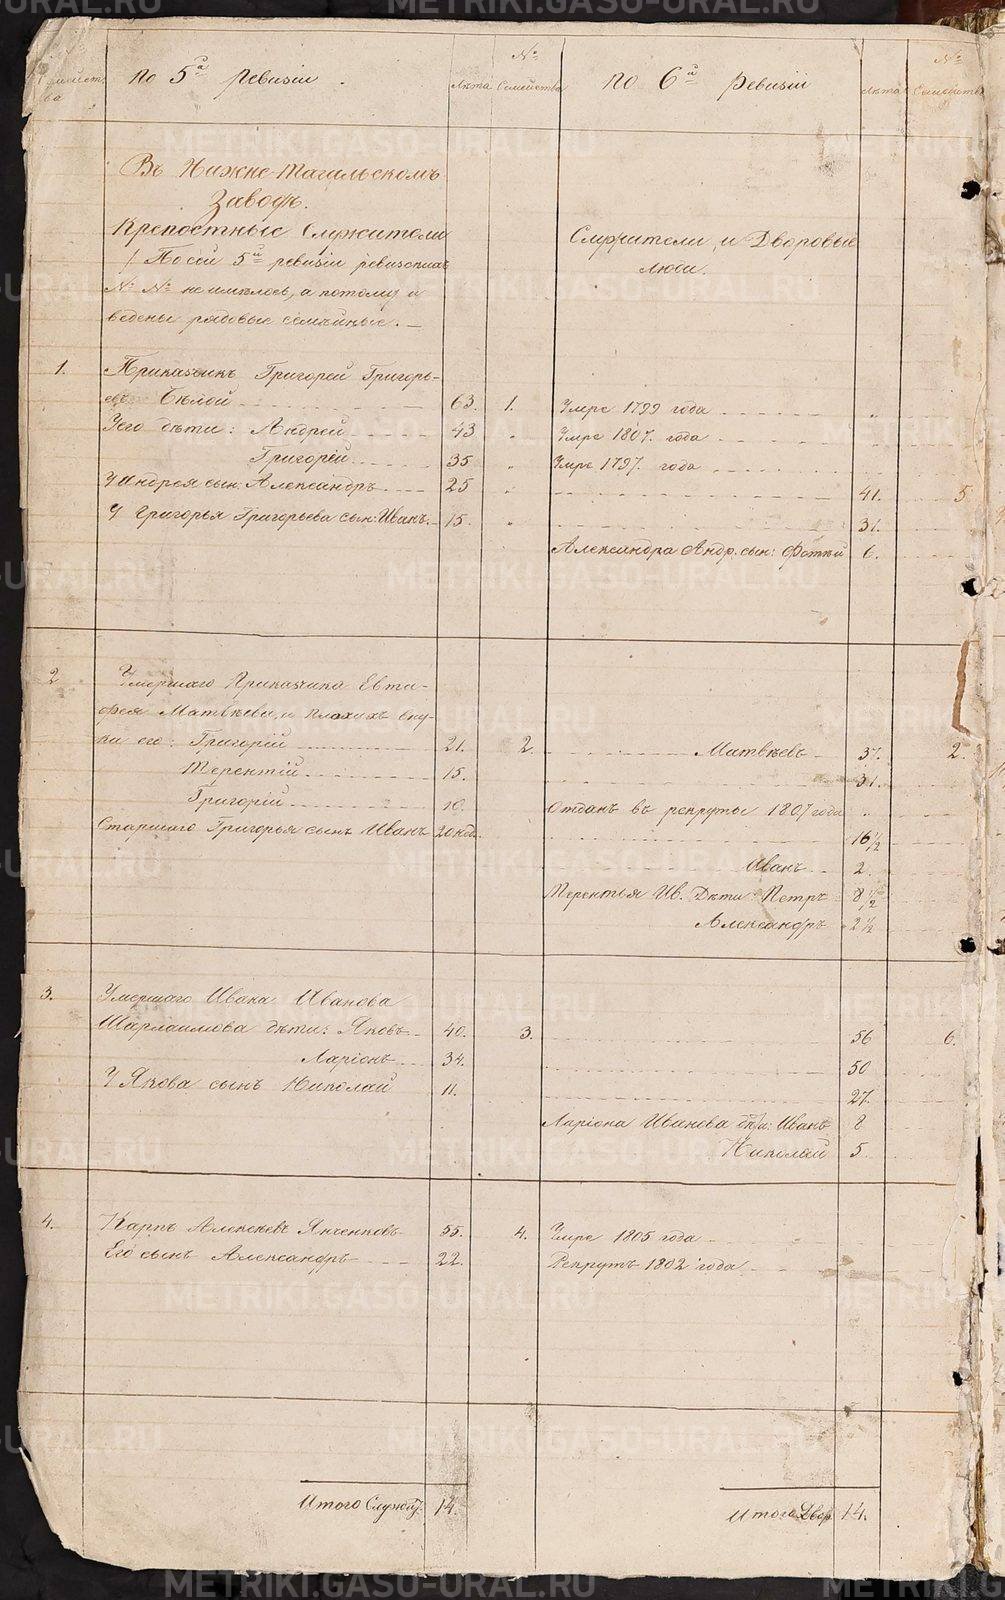 по 5й ревизіи
Лѣта
№ Семейства
по 6й ревизіи
Лѣта
№ Семейства
Въ Нижне-Тагильскомъ
Заводѣ.
Крепостные Служители
Служители и Дворовые
люди.
/ По сей 5й ревизіи ревизскихъ
№ № не имѣлось, а потому и
ведены рядовые семейные. —
1. Прикащикъ Григорей Григорь-
евъ Бѣлой 63. 1. Умре 1799 года
Его дѣти: Андрей 43 Умре 1807. года
Григорій 35 Умре 1797. года
У Андрея сынъ: Александръ 25 41. 5
У Григорья Григорьева сын: Иванъ. 15. 31.
Александра Андр. сын: 6.
2 Умершаго Прикащика Евти-
фея Матвѣева, и Плохихъ вну-
ки его: Григорій 21. 2. Матвѣевъ 37. 2.
Терентій 15. 31.
Григорій 10. Отданъ въ рекруты 1807 года
Старшаго Григорья сынъ Иванъ 20 нед. 16 ½
Иванъ 2.
Терентья Ив. Дѣти: Петръ 8 ½
Александръ 2 ½
3. Умершаго Ивана Иванова
Шарлаимова дѣти: Яковъ 40. 3. 56 6.
Ларіонъ 34. 50
У Якова сынъ Николай 11. 27.
Ларіона Иванова дѣти: Иванъ 8
Николай 5
4. Карпъ Алексѣевъ Янченковъ 55. 4. Умре 1805 года
Его сынъ Александръ 22. Рекрутъ 1802 года
Итого Служит. 14.
Итого Двор. 14.
METRIKI.GASO-URAL.RU